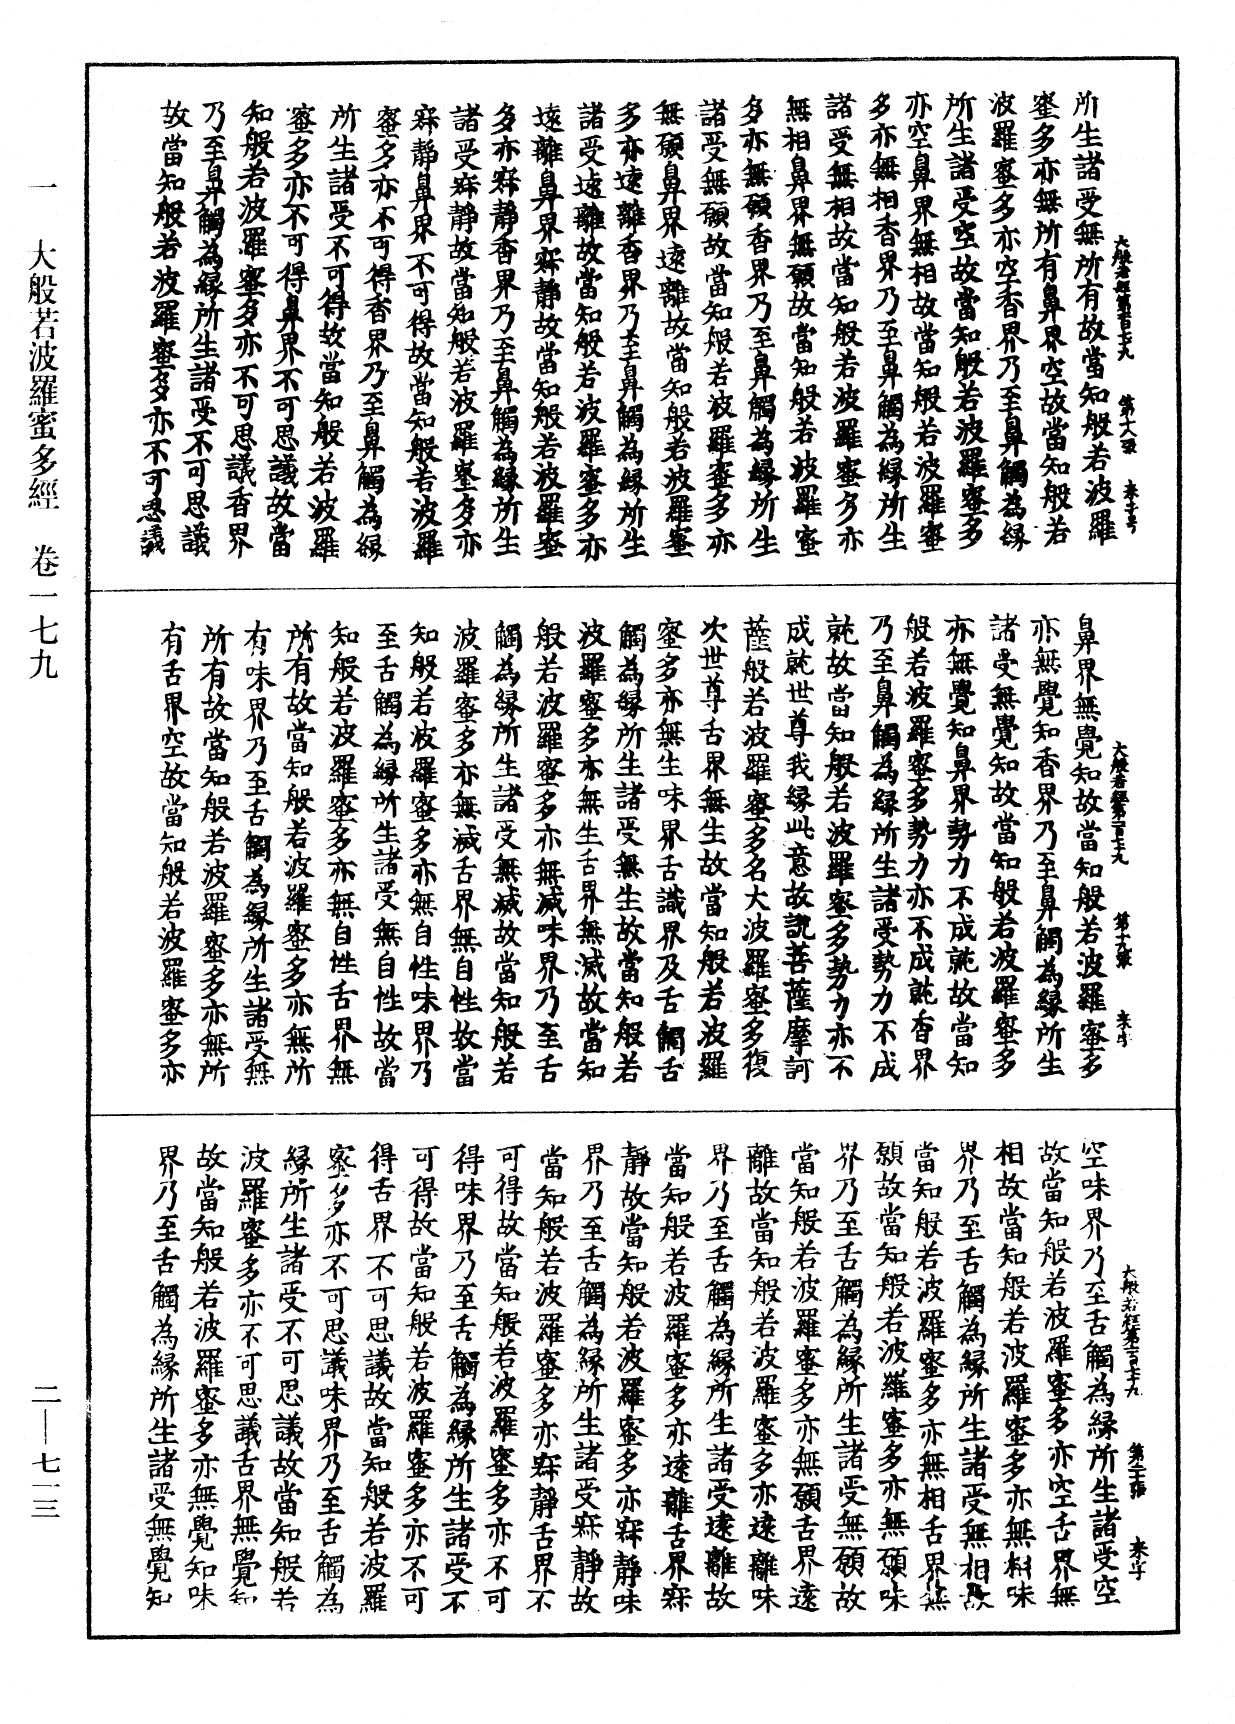 大般若經第一百七九 第十八張 来字号
所生諸受無所有故當知般若波羅
蜜多亦無所有鼻界空故當知般若
波羅蜜多亦空香界乃至鼻觸為緣
所生諸受空故當知般若波羅蜜多
亦空鼻界無相故當知般若波羅蜜
多亦無相香界乃至鼻觸為緣所生
諸受無相故當知般若波羅蜜多亦
無相鼻界無願故當知般若波羅蜜
多亦無願香界乃至鼻觸為緣所生
諸受無願故當知般若波羅蜜多亦
無願鼻界遠離故當知般若波羅蜜
多亦遠離香界乃至鼻觸為緣所生
諸受遠離故當知般若波羅蜜多亦
遠離鼻界寂靜故當知般若波羅蜜
多亦寂靜香界乃至鼻觸為緣所生
諸受寂靜故當知般若波羅蜜多亦
寂靜鼻界不可得故當知般若波羅
蜜多亦不可得香界乃至鼻觸為緣
所生諸受不可得故當知般若波羅
蜜多亦不可得鼻界不可思議故當
知般若波羅蜜多亦不可思議香界
乃至鼻觸為緣所生諸受不可思議
故當知般若波羅蜜多亦不可思議
大般若經第一百七十九 第十九張 来字
鼻界無覺知故當知般若波羅蜜多
亦無覺知香界乃至鼻觸為緣所生
諸受無覺知故當知般若波羅蜜多
亦無覺知鼻界勢力不成就故當知
般若波羅蜜多勢力亦不成就香界
乃至鼻觸為緣所生諸受勢力不成
就故當知般若波羅蜜多勢力亦不
成就世尊我緣此意故說菩薩摩訶
薩般若波羅蜜多名大波羅蜜多復
次世尊舌界無生故當知般若波羅
蜜多亦無生味界舌識界及舌觸舌
觸為緣所生諸受無生故當知般若
波羅蜜多亦無生舌界無滅故當知
般若波羅蜜多亦無滅味界乃至舌
觸為緣所生諸受無滅故當知般若
波羅蜜多亦無滅舌界無自性故當
知般若波羅蜜多亦無自性味界乃
至舌觸為緣所生諸受無自性故當
知般若波羅蜜多亦無自性舌界無
所有故當知般若波羅蜜多亦無所
有味界乃至舌觸為緣所生諸受無
所有故當知般若波羅蜜多亦無所
有舌界空故當知般若波羅蜜多亦
大般若經第一百七十九 第二十張 来字
空味界乃至舌觸為緣所生諸受空
故當知般若波羅蜜多亦空舌界無
相故當知般若波羅蜜多亦無相味
界乃至舌觸為緣所生諸受無相故
當知般若波羅蜜多亦無相舌界無
願故當知般若波羅蜜多亦無願味
界乃至舌觸為緣所生諸受無願故
當知般若波羅蜜多亦無願舌界遠
離故當知般若波羅蜜多亦遠離味
界乃至舌觸為緣所生諸受遠離故
當知般若波羅蜜多亦遠離舌界寂
靜故當知般若波羅蜜多亦寂靜味
界乃至舌觸為緣所生諸受寂靜故
當知般若波羅蜜多亦寂靜舌界不
可得故當知般若波羅蜜多亦不可
得味界乃至舌觸為緣所生諸受不
可得故當知般若波羅蜜多亦不可
得舌界不可思議故當知般若波羅
蜜多亦不可思議味界乃至舌觸為
緣所生諸受不可思議故當知般若
波羅蜜多亦不可思議舌界無覺知
故當知般若波羅蜜多亦無覺知味
界乃至舌觸為緣所生諸受無覺知
一 大般若波羅蜜多經 卷一七九
二——七一三